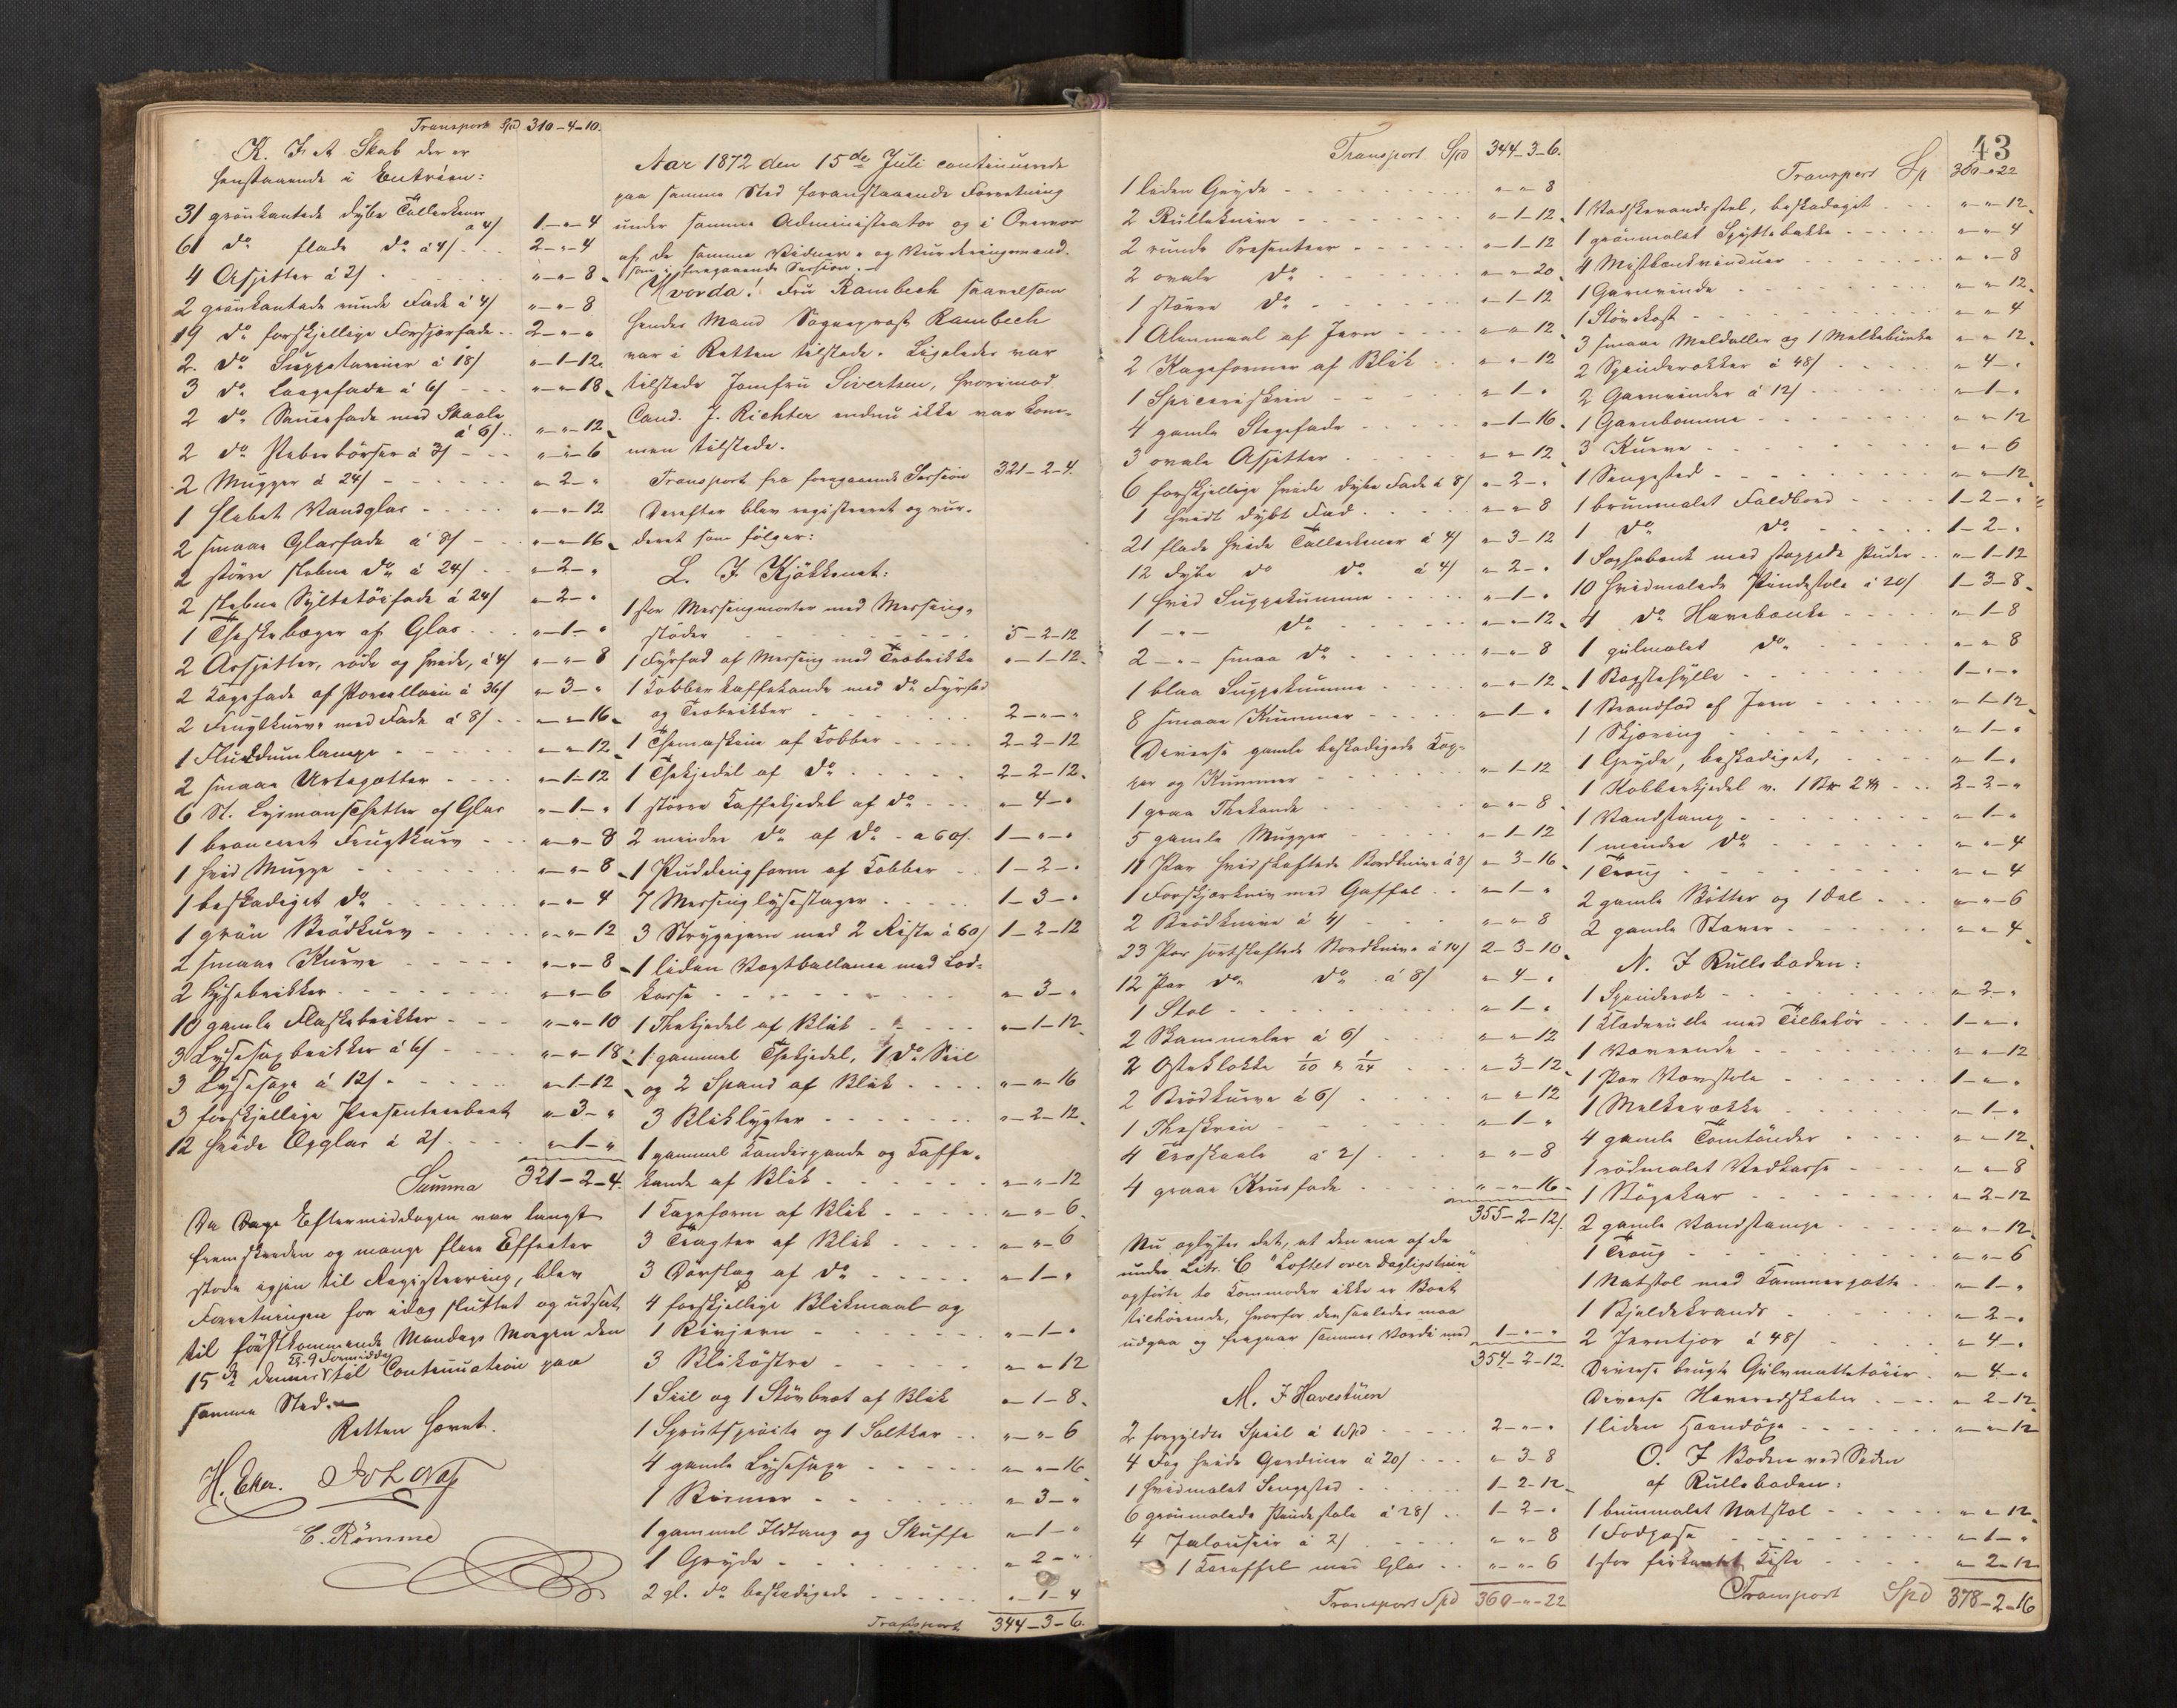 Transport Spd 310-4-10.
K. I et Skab der er
henstaaende i Entréen:
31 grönkantede dybe Tallerkener
à 4/ 1-"-4
61 do flade do à 4/ 2-"-4
4 Assjetter à 2/ "-"-8
2 grönkantede runde Fade à 4/ "-"-8
19 do forskjellige Forskjærfade 2-"-"
2 do Suppeterriner à 18/ "-1-12
3 do Laagefade à 6/ "-"-18
2 do Sausefade med Skaale
à 6/ "-"-12
2 do Peberbörser à 3/ "-"-6
2 Mugger à 24/ "-2-"
1 slebet Vandglas "-"-12
2 smaae Glasfade à 8/ "-"-16
2 större slebne do à 24/ "-2-"
2 slebne Syltetöifade à 24/ "-2-"
1 Theskebæger af Glas "-1-"
2 Assjetter, röde og hvide, à 4/ "-"-8
2 Kagefade af Porcellain à 36/ "-3-"
2 Frugtkurve med Fade à 8/ "-"-16
1 Fluidumlampe "-"-12
2 smaae Urtepotter "-1-12
6 St. Lysmanschetter af Glas "-1-"
1 bronceret Frugtkurv "-"-8
1 hvid Mugge "-"-8
1 beskadiget do "-"-4
1 grön Brödkurv "-"-12
2 smaae Kurve "-"-8
2 Lysebrikker "-"-6
10 gamle Flaskebrikker "-"-10
3 Lysesaxbrikker à 6/ "-"-18
3 Lysesaxe à 12/ "-1-12
3 forskjellige Presenteerbret "-3-"
12 hvide Ægglas à 2/ "-1-"
Summa 321-2-4.
Da Dage Eftermiddagen var langt
fremskreden og mange flere Effecter
stode igjen til Registrering, blev
Forretningen for idag sluttet og udsat
til förstkommende Mandags Morgen den
Kl. 9 Formiddag
15de dennes til Continuation paa
samme Sted.
Retten hævet.
H. Eker.
C. Römme
Aar 1872 den 15de Juli continuerede
paa samme Sted foranstaaende Forretning
under samme Administrator og i Overvær
af de samme Vidner og Vurderingsmænd.
som i foregaaende Session.
Hvorda! Fru Rambech saavelsom
hendes Mand Sogneprest Rambech
var i Retten tilstede. Ligeledes var
tilstede Jomfru Sivertsen, hvorimod
Cand. J. Richter endnu ikke var kom-
men tilstede.
Transport fra foregaaende Session 321-2-4.
Derefter blev registreret og vur-
deret som fölger:
L. I Kjökkenet:
1 stor Messingmorter med Messing-
stöder 5-2-12
1 Fyrfad af Messing med Træbrikke "-1-12
1 Kobberkaffekande med do Fyrfad
og Træbrikker 2-"-"
1 Themaskine af Kobber 2-2-12
1 Thekjedel af do 2-2-12
1 större Kaffekjedel af do "-4-"
2 mindre do af do à 60/ 1-"-"
1 Puddingform af Kobber 1-2-"
7 Messinglysestager 1-3-"
3 Strygejern med 2 Riste à 60/ 1-2-12
1 liden Vægtballance med Lod-
kasse "-3-"
1 Thekjedel af Blik "-1-12
1 gammel Thekjedel, 1 do Siil
og 2 Spand af Blik "-"-16
3 Bliklygter "-2-12
1 gammel Kandispande og Kaffe-
kande af Blik "-"-12
1 Kageform af Blik "-"-6
3 Tragter af Blik "-"-6
3 Dörslag af do "-1-"
4 forskjellige Blikmaal og
1 Rivjern "-1-"
3 Bliköstre "-"-12
1 Siil og 1 Stövbret af Blik "-1-8
1 Sprutspröite og 1 Saltkar "-"-6
4 gamle Lysesaxe "-"-16
1 Bismer "-3-"
1 gammel Ildtang og Skuffe "-1-"
1 Gryde "-2-"
2 gl. do beskadigede "-1-4
Transport 344-3-6.
Transport Spd 344-3-6.
1 liden Gryde "-"-8
2 Rulleknive "-1-12
2 runde Presenteer "-1-12
2 ovale do "-"-20
1 större do "-1-12
1 Alenmaal af Jern "-"-12
2 Kageformer af Blik "-"-12
1 Spiceriskrin "-1-"
4 gamle Stegefade "-1-16
3 ovale Assjetter "-"-12
6 forskjellige hvide dybe Fade à 8/ "-2-"
1 hvidt dybt Fad "-"-8
21 flade hvide Tallerkener à 4/ "-3-12
12 dybe do do à 4/ "-2-"
1 hvid Suppekumme "-1-"
1 -"- do "-"-12
2 -"- smaa do "-"-8
1 blaa Suppekumme "-"-12
8 smaae Kummer "-1-"
Diverse gamle beskadigede Kop-
per og Kummer "-1-12
1 graa Thekande "-"-8
5 gamle Mugger "-1-12
11 Par hvidskaftede Bordknive à 8/ "-3-16
1 Forskjærkniv med Gaffel "-1-"
2 Brödknive à 4/ "-"-8
23 Par sortskaftede Bordknive à 14/ 2-3-10
12 Par do do à 8/ "-4-"
1 Stol "-1-"
2 Skammeler à 6/ "-"-12
2 Osteklokke 1/60 & 1/24 "-3-12
2 Brödkurve à 6/ "-"-12
1 Theskrin "-1-"
4 Træskaale à 2/ "-"-8
4 graae Krusfade "-"-16
355-2-12/.
Nu oplystes det, at den ene af de
under Litr. C "Loftet over Dagligstuen"
opförte to Kommoder ikke er Boet
tilhörende, hvorfor den saaledes maa
udgaa og fragaar sammes Værdi med 1-"-"
354-2-12.
M. I Havestuen
2 forgyldte Speil à 1 Spd 2-"-"
4 Fag hvide Gardiner à 20/ "-3-8
1 hvidmalet Sengested 1-2-12
6 grönmalede Pindestole à 28/ 1-2-"
4 Jalousier à 2/ "-"-8
1 Karaffel med Glas "-"-6
Transport Spd 360-"-22
43
Transport Sp 360-"-22
1 Vadskevandsstel, beskadiget "-"-12
1 grönmalet Spyttebakke "-"-4
4 Mistbænkvinduer "-"-8
1 Garnvinde "-"-12
1 Stövekost "-"-4
3 smaae Meldaller og 1 Melkebunke "-"-12
2 Spinderokker à 48/ "-4-"
2 Garnvinder à 12/ "-1-"
1 Garnbomme "-"-12
3 Kurve "-"-6
1 Sengested "-"-12
1 brunmalet Foldbord 1-2-"
1 do do 1-2-"
1 Sophabænk med stoppede Puder "-1-12
10 hvidmalede Pindestole à 20/ 1-3-8
4 do Havebænke "-1-8
1 gulmalet do "-"-8
1 Bogstehylle 1-"-"
1 Brandfad af Jern "-1-12
1 Skjæring "-1-"
1 Gryde, beskadiget, "-1-"
1 Kobberkjedel v. 1 Bp 2 ℔ 2-2-"
1 Vandstamp "-1-"
1 mindre do "-"-4
1 Traug "-"-4
2 gamle Bötter og 1 Dal "-"-6
2 gamle Staver "-"-4
N. I Rulleboden:
1 Spinderok "-2-"
1 Klæderulle med Tilbehör 1-"-"
1 Varrende "-"-12
1 Par Vævstole 1-"-"
1 Melkerække "-1-"
4 gamle Tomtönder "-"-12
1 rödmalet Vedkasse "-"-8
1 Bögekar "-2-12
2 gamle Vandstampe "-"-12
1 Traug "-"-6
1 Natstol med Kammerpotte "-1-"
1 Bjeldekrands "-2-"
2 Jerntjor à 48/ "-4-"
Diverse brugte Gulvmattetöier "-4-"
Diverse Haveredskaber "-2-12
1 liden Haandöxe "-"-12
O. I Boden ved Siden
af Rulleboden:
1 brunmalet Natstol "-"-12
1 Fodpose "-1-"
1 stor firkantet Kiste "-2-12
Transport Spd 378-2-16